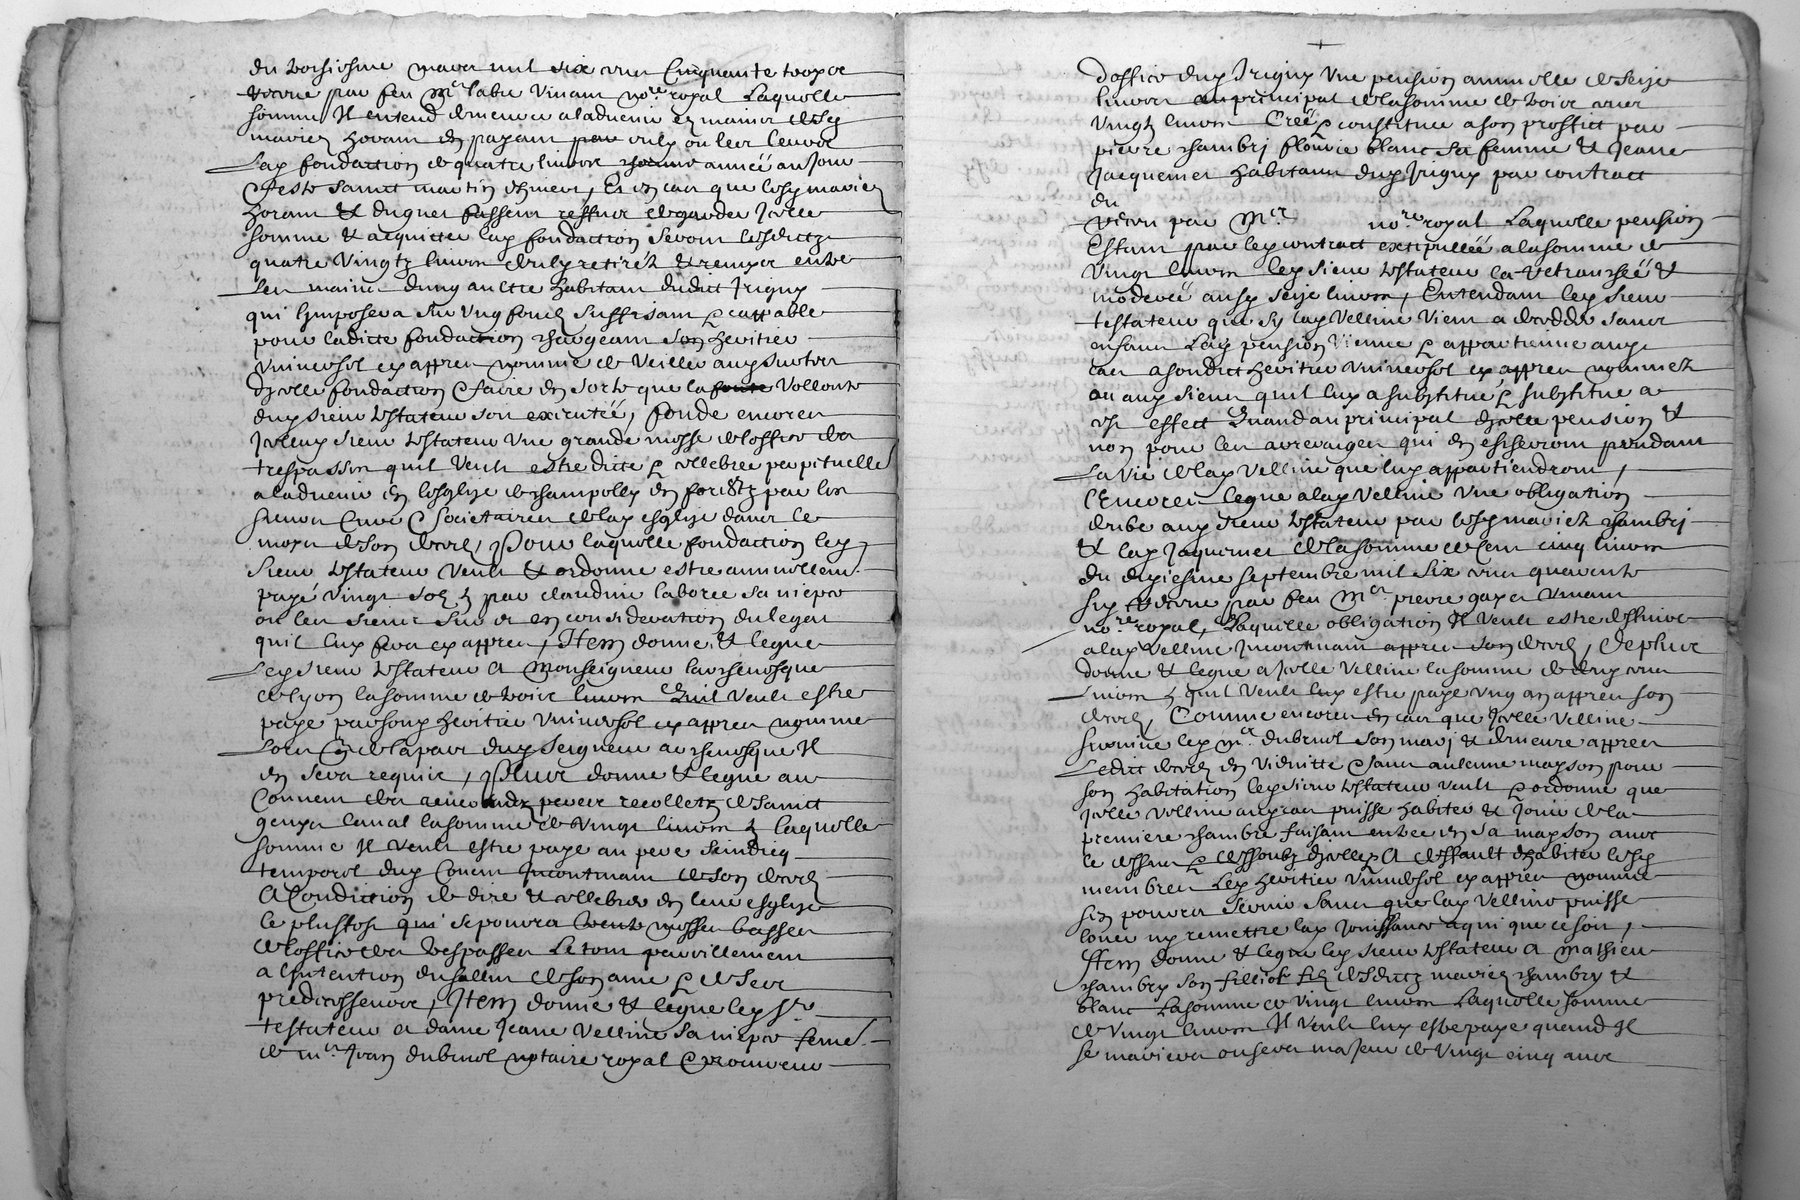 du troisiesme mars mil six cens cinquante troys
receue par feu Mre Labre Vinam nore. royal Laquelle
somme Il entend demeure aladvenir es mains desdy
mariez Horam en payam par culx ou leer ceux
Lay fondaction de quatre livres année au Jour
& feste sainct martin dhiver, Et en cas que lesdy mariez
Horam & du quer fassem reffux de garder Icelle
somme & acquicter lay fondaction seront lesdictz
quatre Vingtz livres retirés & remys entre
Les mains dung aultre habitam dudict Irigny
qui Imposera sur Ung fond suffisam & cappable
pour ladicte fondaction chargeam son heritier
Universel cy appres nommé de Veiller aux
dicelle fondaction & faire en sorte que la Vollonte
dudy sieur testateur soit executée, fonde encores
Icelluy sieur testateur Une grande messe de loffice des
trespassés quil Veult estre dicte & cellebree perpetuelle
aladvenir en lesglize de champolly en foretz par les
sieurs Curé & Societaires de lay esglize dans le
moys de son deces, Pour laquelle fondaction ley
sieur testateur Veult & ordonne estre annuellem.
payé Vingt solz par claudine laboree sa niepce
ou les siens sur & en consideration du legat
quil luy fera cy appres, Item donne & legue
Ley sieur testateur A Monseigneur larchevesque
de lyon la somme de trois livres quil Veult estre
paye par sondy heritier Universel cy appres nommé
Lors que de la part dudy seigneur archevesque Il
en sera requis, Plus donne & legue au
Couvent des reverendz peres recolletz de sainct
genys laval la somme de Vingt livres laquelle
somme Il Veult estre paye au pere scindicq
temporel dudy Couvent Incontinam de son deces
A Condition de dire & cellebrer en leur esglize
le plustost qui se pourra trente messes basses
de loffice des trespasses Le tout pareillement
a lintention du sallut de son ame & de ses
predecesseurs, Item donne & legue ley Sr
testateur a dame Jeane Velline sa niepce feme
de mre Jean dubrnel notaire royal & procureur
doffice dudy Irigny Une pension annuelle de seize
livres au principal de la somme de trois cens
Vingtz livres Creée & constituée a son proffict par
pierre chambry flourie blanc sa femme & Jeane
Jacquemet habitans dudy Irigny par contract
du
receu par Mre nore. royal Laquelle pension
Estant par ley contract extipullée a la somme de
Vingt livres ley sieur testateur la retranchée &
moderée ausdy seize livres, Entendam ley sieur
testateur que sy lay Velline Vient a decedder sans
enfans Lay pension Vienne & appartienne audy
cas a sondict heritier Universel cy appres nommez
ou aux siens quil luy a substitué & substitue a
cest effect Quand au principal dicelle pension &
non pour les arrerages qui en escherront pendant
La Vie de lay Velline que luy appartiendront,
Encores legue a lay Velline Une obligation
deube audy sieur testateur par lesdy mariez chambry
& lay Jaquemet de la somme de cent cinq livres
du dixiesme septembre mil six cens quarente
six receue par feu Mre pierre gayes Vinam
nore. royal, Laquelle obligation Il Veult estre deslivree
a lay Velline Incontinam appres son deces, De plus
donne & legue a Icelle Velline la somme de cens
Livres quil Veult luy estre paye Ung an appres son
deces, Comme encores en cas que Icelle Velline
survive ley mre dubrnel son mary & demeure appres
Ledict deces en Viduitte & sans aulcune mayson pour
son habitation ley sieur testateur Veult & ordonne que
Icelle Velline audy cas puisse habiter & Jouir de la
premiere chambre faisam entree en sa mayson avec
le dessus & dessoubz dicelle, A deffault dhabiter lesdy
membres ley heritier Universel cy appres nommé
sen pourra servir sans que lay Velline puisse
louer ny remettre lay Jouissance a qui que ce soit,
Item donne & legue ley sieur testateur a Mathieu
chambry son filliol filz desdictz mariez chambry &
blanc La somme de Vingt livres Laquelle somme
de Vingt livres Il Veult luy estre paye quand Il
se mariera ou sera majeur de Vingt cinq ans